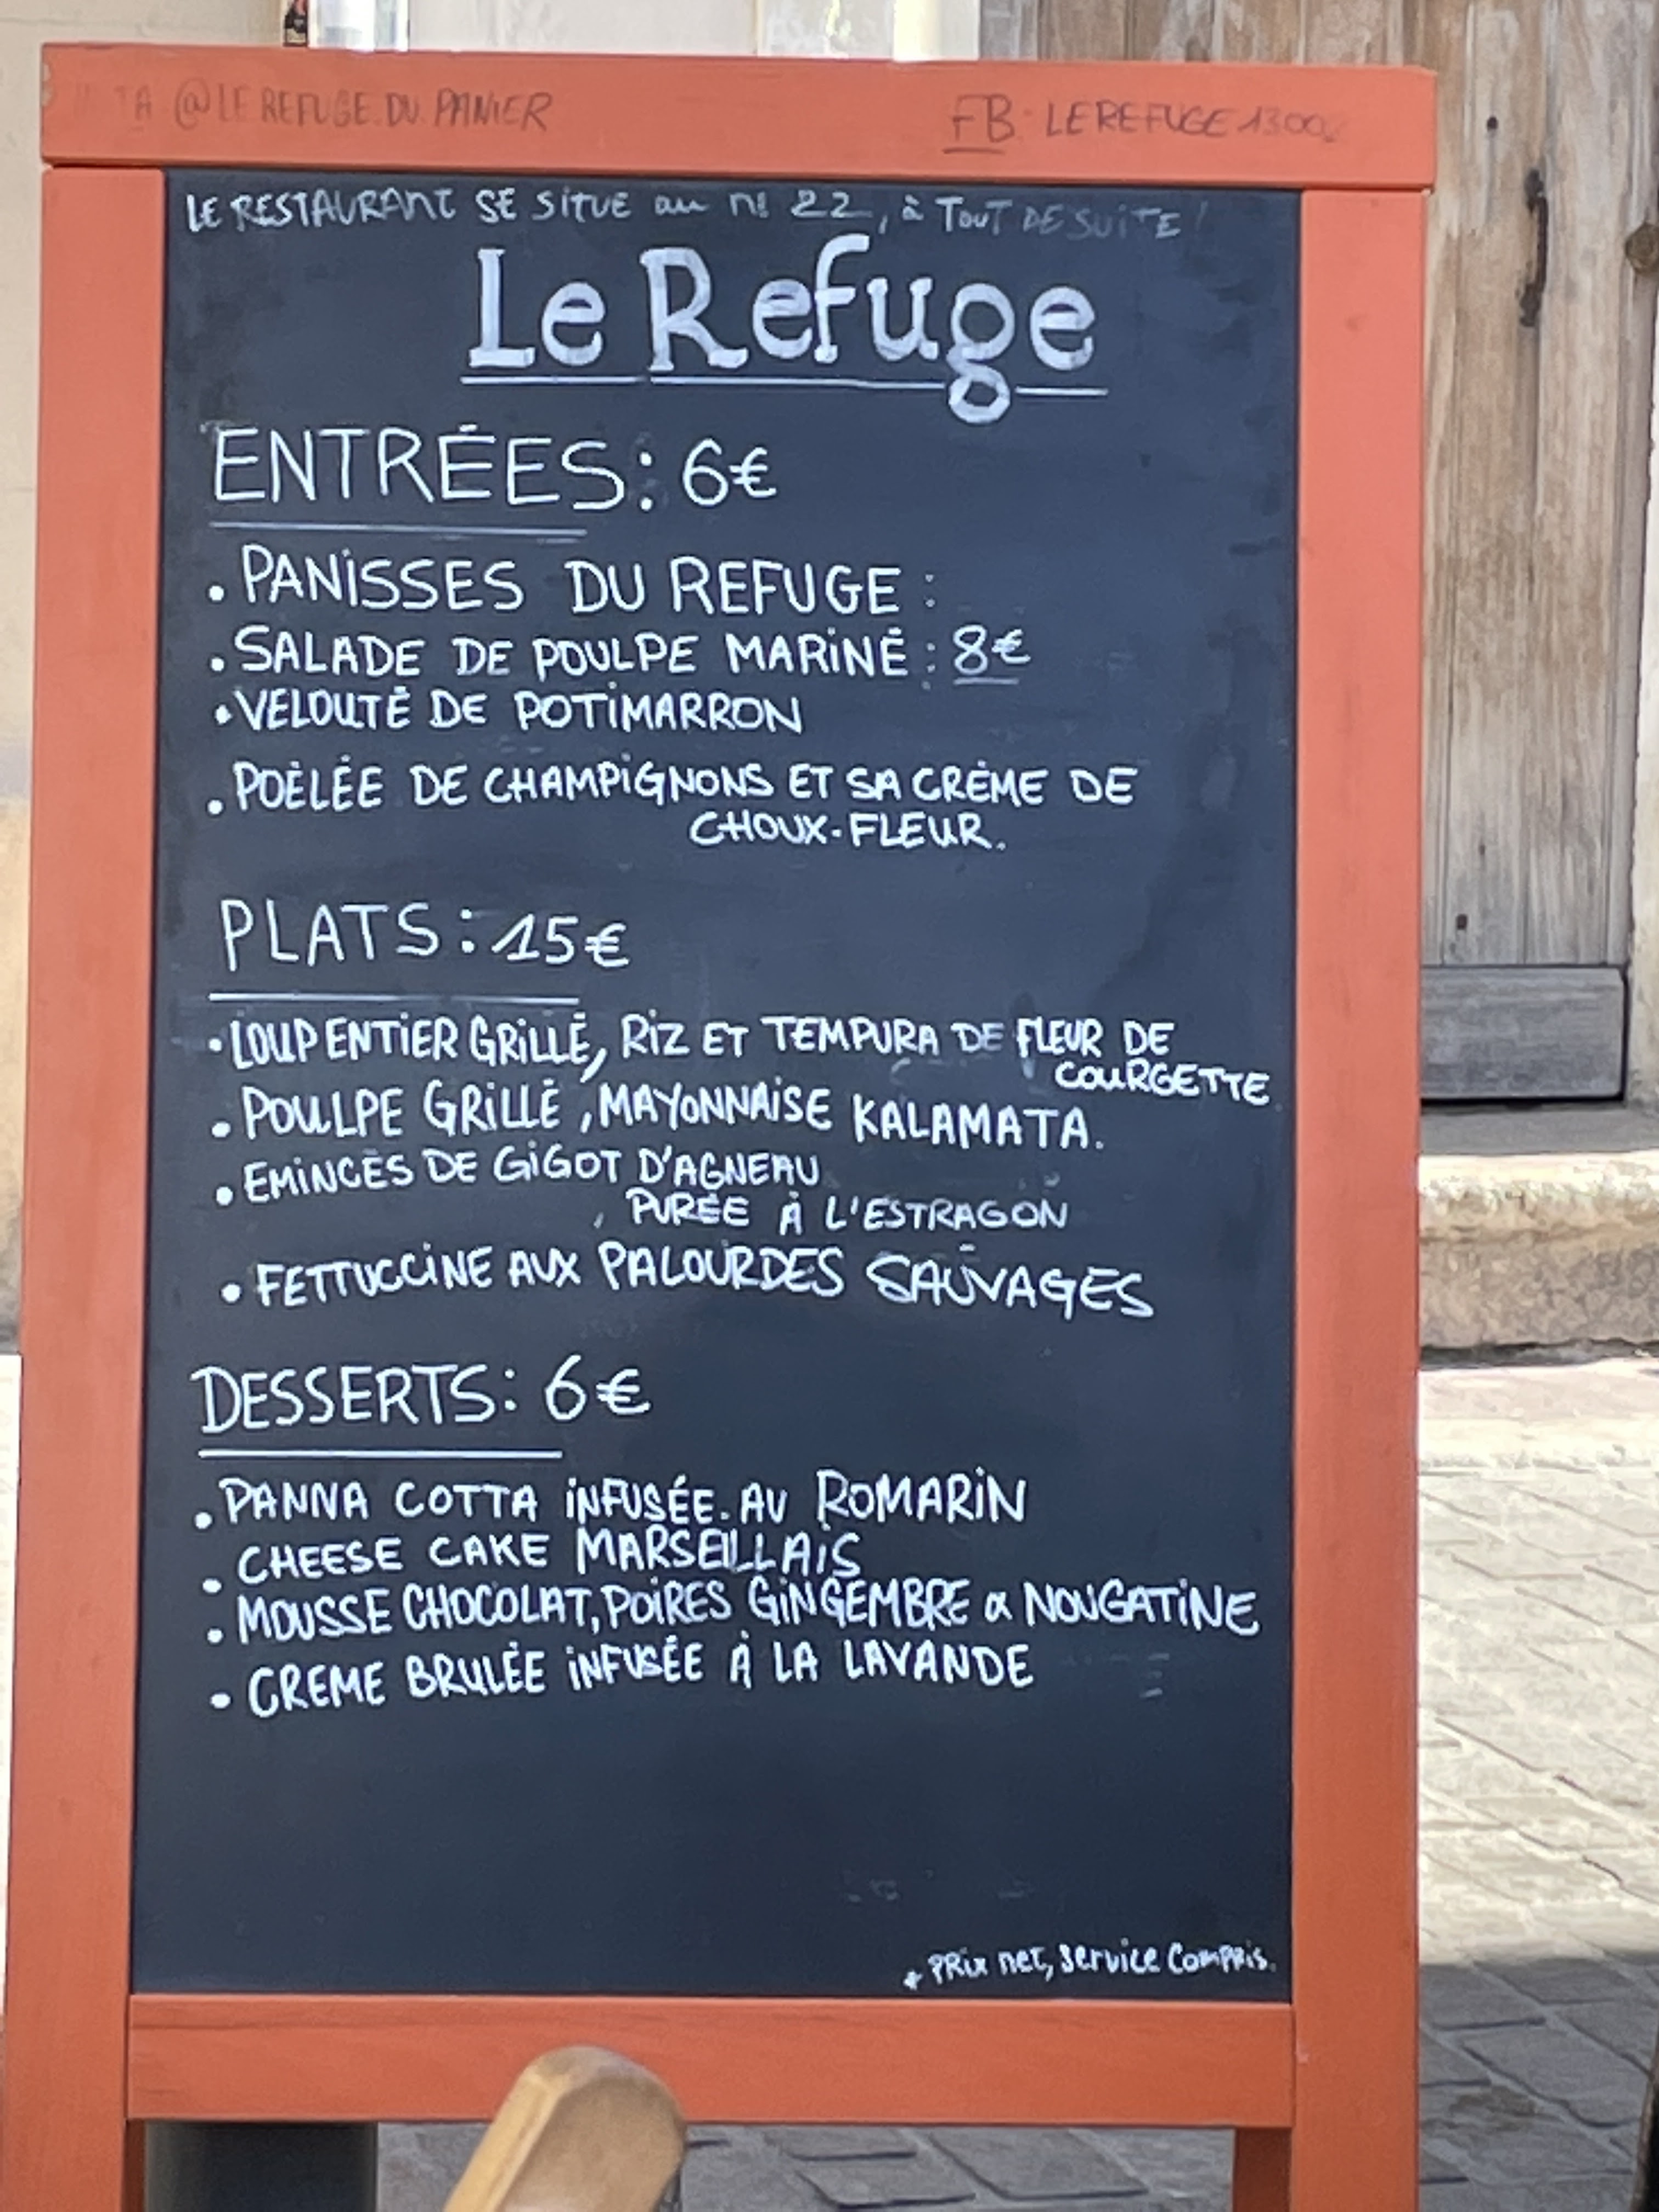 @LE REFUGE.DU.PANIER
FB: LEREFUGE
LE RESTAURANT SE SITUE au n! 22, à TOUT DE SUITE!
Le Refuge
ENTRÉES: 6€
. PANISSES DU REFUGE :
. SALADE DE POULPE MARINÉ : 8€
. VELOUTÉ DE POTIMARRON
. POÊLÉE DE CHAMPIGNONS ET SA CRÈME DE
CHOUX-FLEUR.
PLATS: 15€
. LOUP ENTIER GRILLÉ, RIZ ET TEMPURA DE FLEUR DE
COURGETTE.
. POULPE GRILLÉ, MAYONNAISE KALAMATA.
. EMINCÉS DE GIGOT D'AGNEAU
, PURÉE À L'ESTRAGON
. FETTUCCINE AUX PALOURDES SAUVAGES
DESSERTS: 6€
. PANNA COTTA INFUSÉE. AU ROMARIN
. CHEESE CAKE MARSEILLAIS
. MOUSSE CHOCOLAT, POIRES GINGEMBRE & NOUGATINE
. CREME BRULÉE INFUSÉE À LA LAVANDE
* PRIX net, service compris.